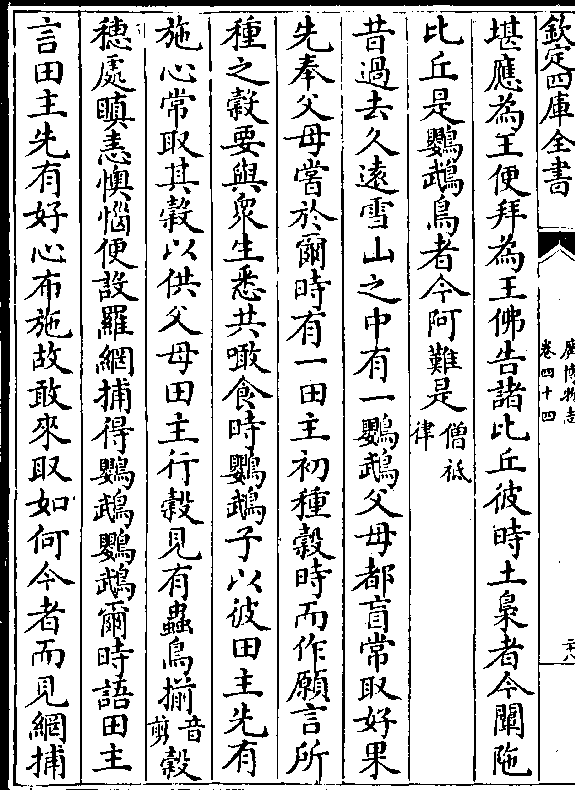 欽定四庫全書
廣博物志
卷四十四
堪應為王便拜為王佛告諸比丘彼時土梟者今闡陁
比丘是鸚鵡鳥者今阿難是僧祇律
昔過去久遠雪山之中有一鸚鵡父母都盲常取好果
先奉父母嘗於爾時有一田主初種穀時而作願言所
種之穀要與衆生悉共噉食時鸚鵡子以彼田主先有
施心常取其穀以供父母田主行穀見有蟲鳥揃音剪穀
穗處瞋恚懊惱便設羅網捕得鸚鵡鸚鵡爾時語田主
言田主先有好心布施故敢來取如何今者而見網捕